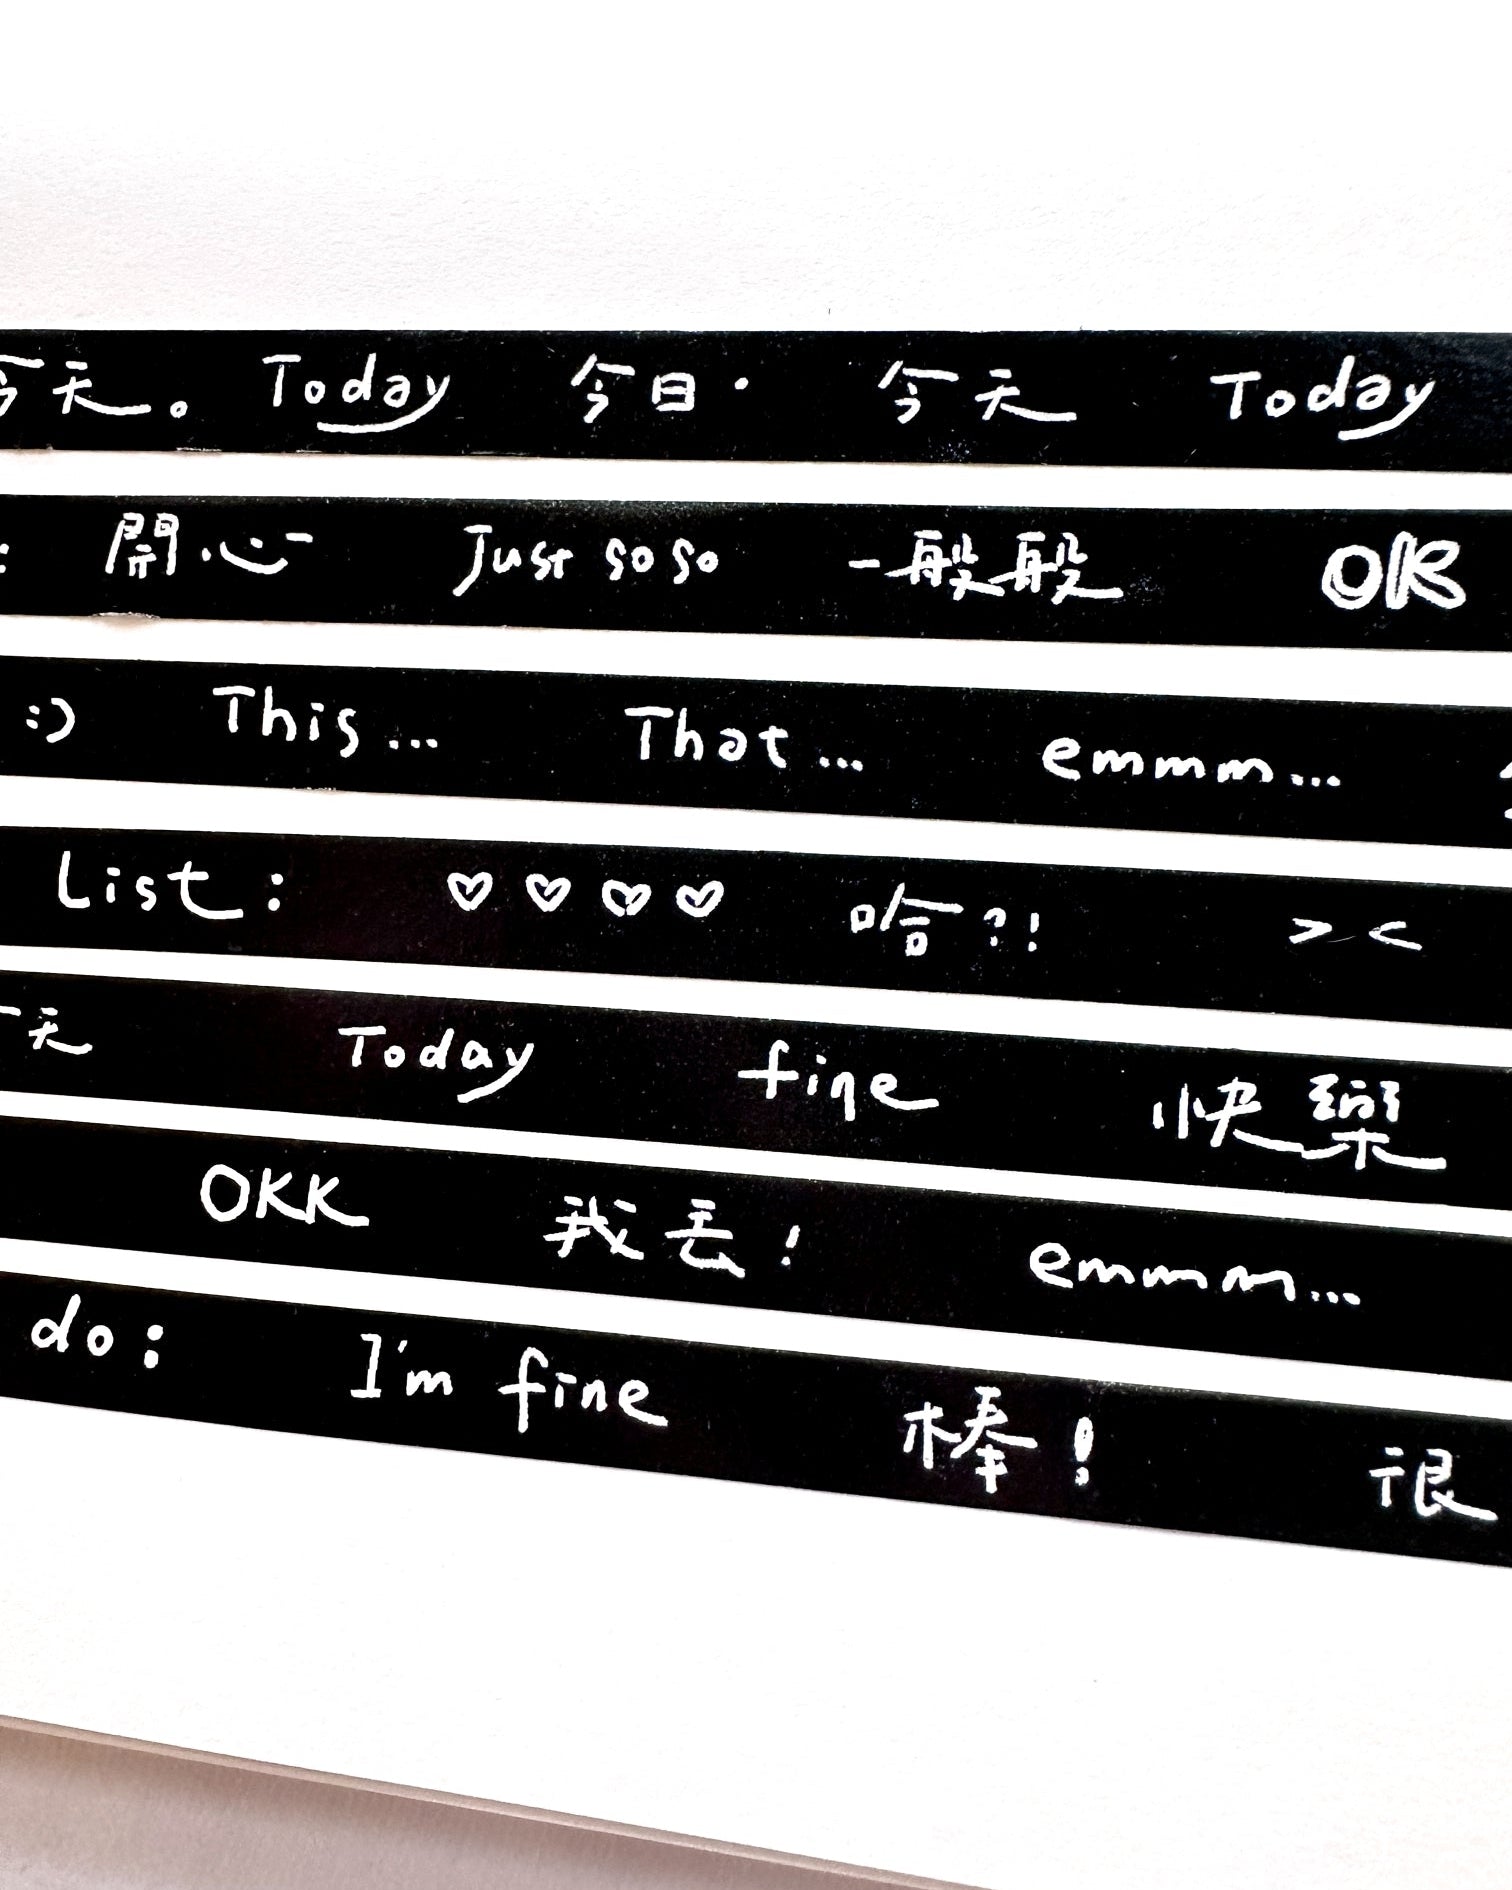 今天。 Today 今日· 今天 Today
: 開心 Just so so 一般般 OK
:) This... That... emmm...
List: ♡♡♡♡ 哈?! > <
今天 Today fine 快樂
OKK 我丟! emmm...
do: I'm fine 棒! 很